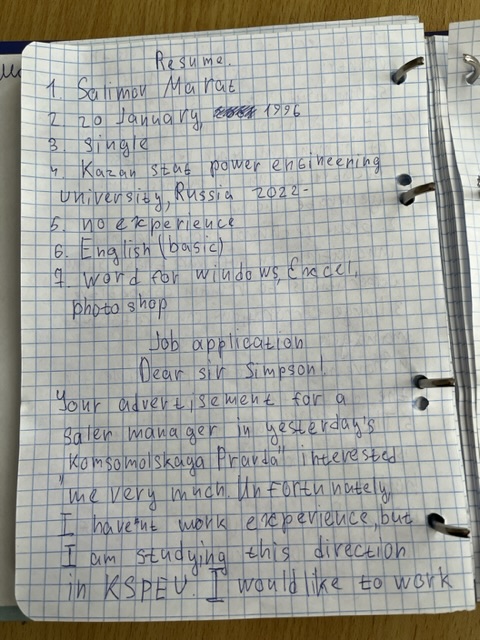 Resume.
1. Salimov Marat
2 20 January, 1996
3 single
4. Kazan stat power engineering
university, Russia 2022-
5. no experience
6. English (basic)
7. word for windows, Excel,
photo shop
Job application
Dear sir Simpson!
Your advertisement for a
saler manager in yesterday's
"Komsomolskaga Pravda" interested
me very much. Unfortunately,
I have'nt work experience, but
I am studying this direction
in KSPEU. I would like to work